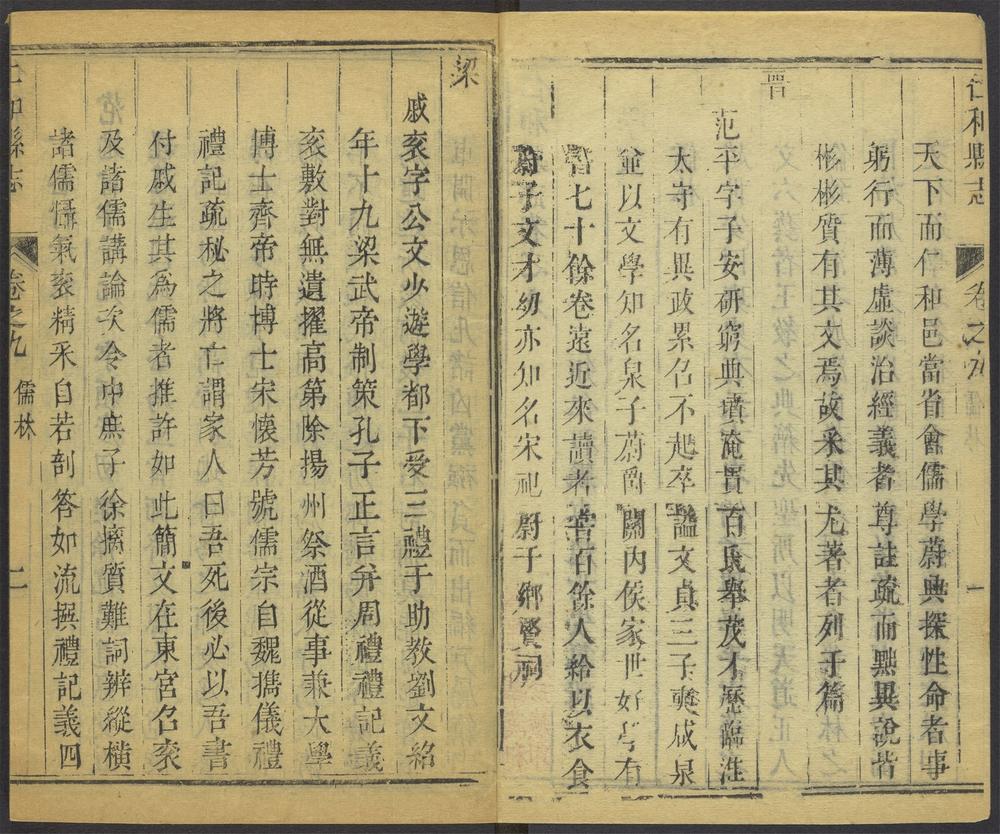 仁和縣志
卷之九
一
天下而仁和邑當省會儒學蔚興探性命者事
躬行而薄虛談治經義者尊註疏而黜異說皆
彬彬質有其文焉故采其尤著者列于篇
晉
范平字子安研窮典墳淹貫百氏舉茂才歷臨淮
太守有異政累召不起卒謚文貞三子奭咸泉
並以文學知名泉子蔚爵關內侯家世好學有
書七十餘卷遠近來讀者常百餘人給以衣食
蔚子文才幼亦知名宋祀蔚于鄉賢祠
梁
戚衮字公文少遊學都下受三禮于助教劉文紹
年十九梁武帝制策孔子正言并周禮禮記義
衮敷對無遺擢高第除揚州祭酒從事兼太學
博士齊帝時博士宋懷芳號儒宗自魏攜儀禮
禮記疏秘之將亡謂家人曰吾死後必以吾書
付戚生其為儒者推許如此簡文在東宮名衮
及諸儒講論次令中庶子徐摛質難詞辨縱橫
諸儒懾氣衮精采自若剖答如流撰禮記義四
仁和縣志
卷之九
儒林
二